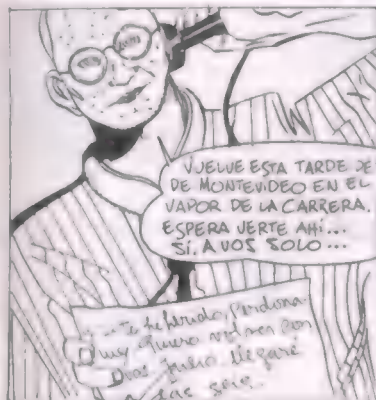 VUELVE ESTA TARDE DE
DE MONTEVIDEO EN EL
VAPOR DE LA CARRERA.
ESPERA VERTE AHÍ...
SÍ. A VOS SOLO...
te he herido, Perdona
muy quiero volver con
Julio llegaré
a las seis.